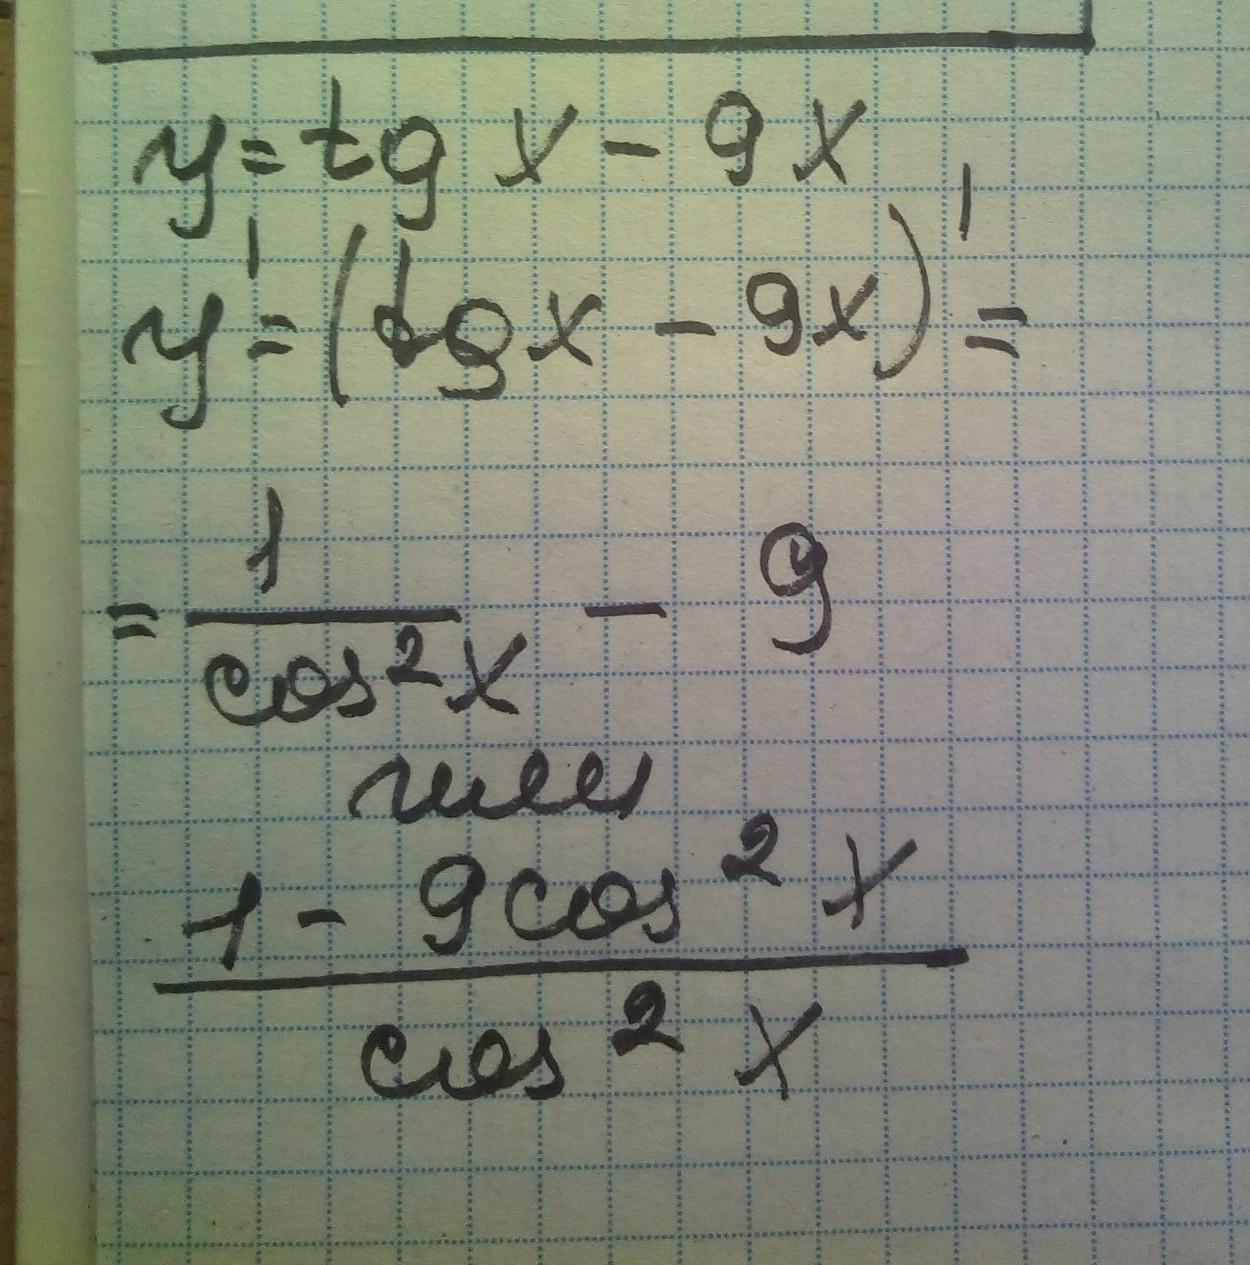 y = tg x - 9x
y' = (tgx - 9x)' =
= 1/cos²x - 9
или
1 - 9cos²x
cos²x